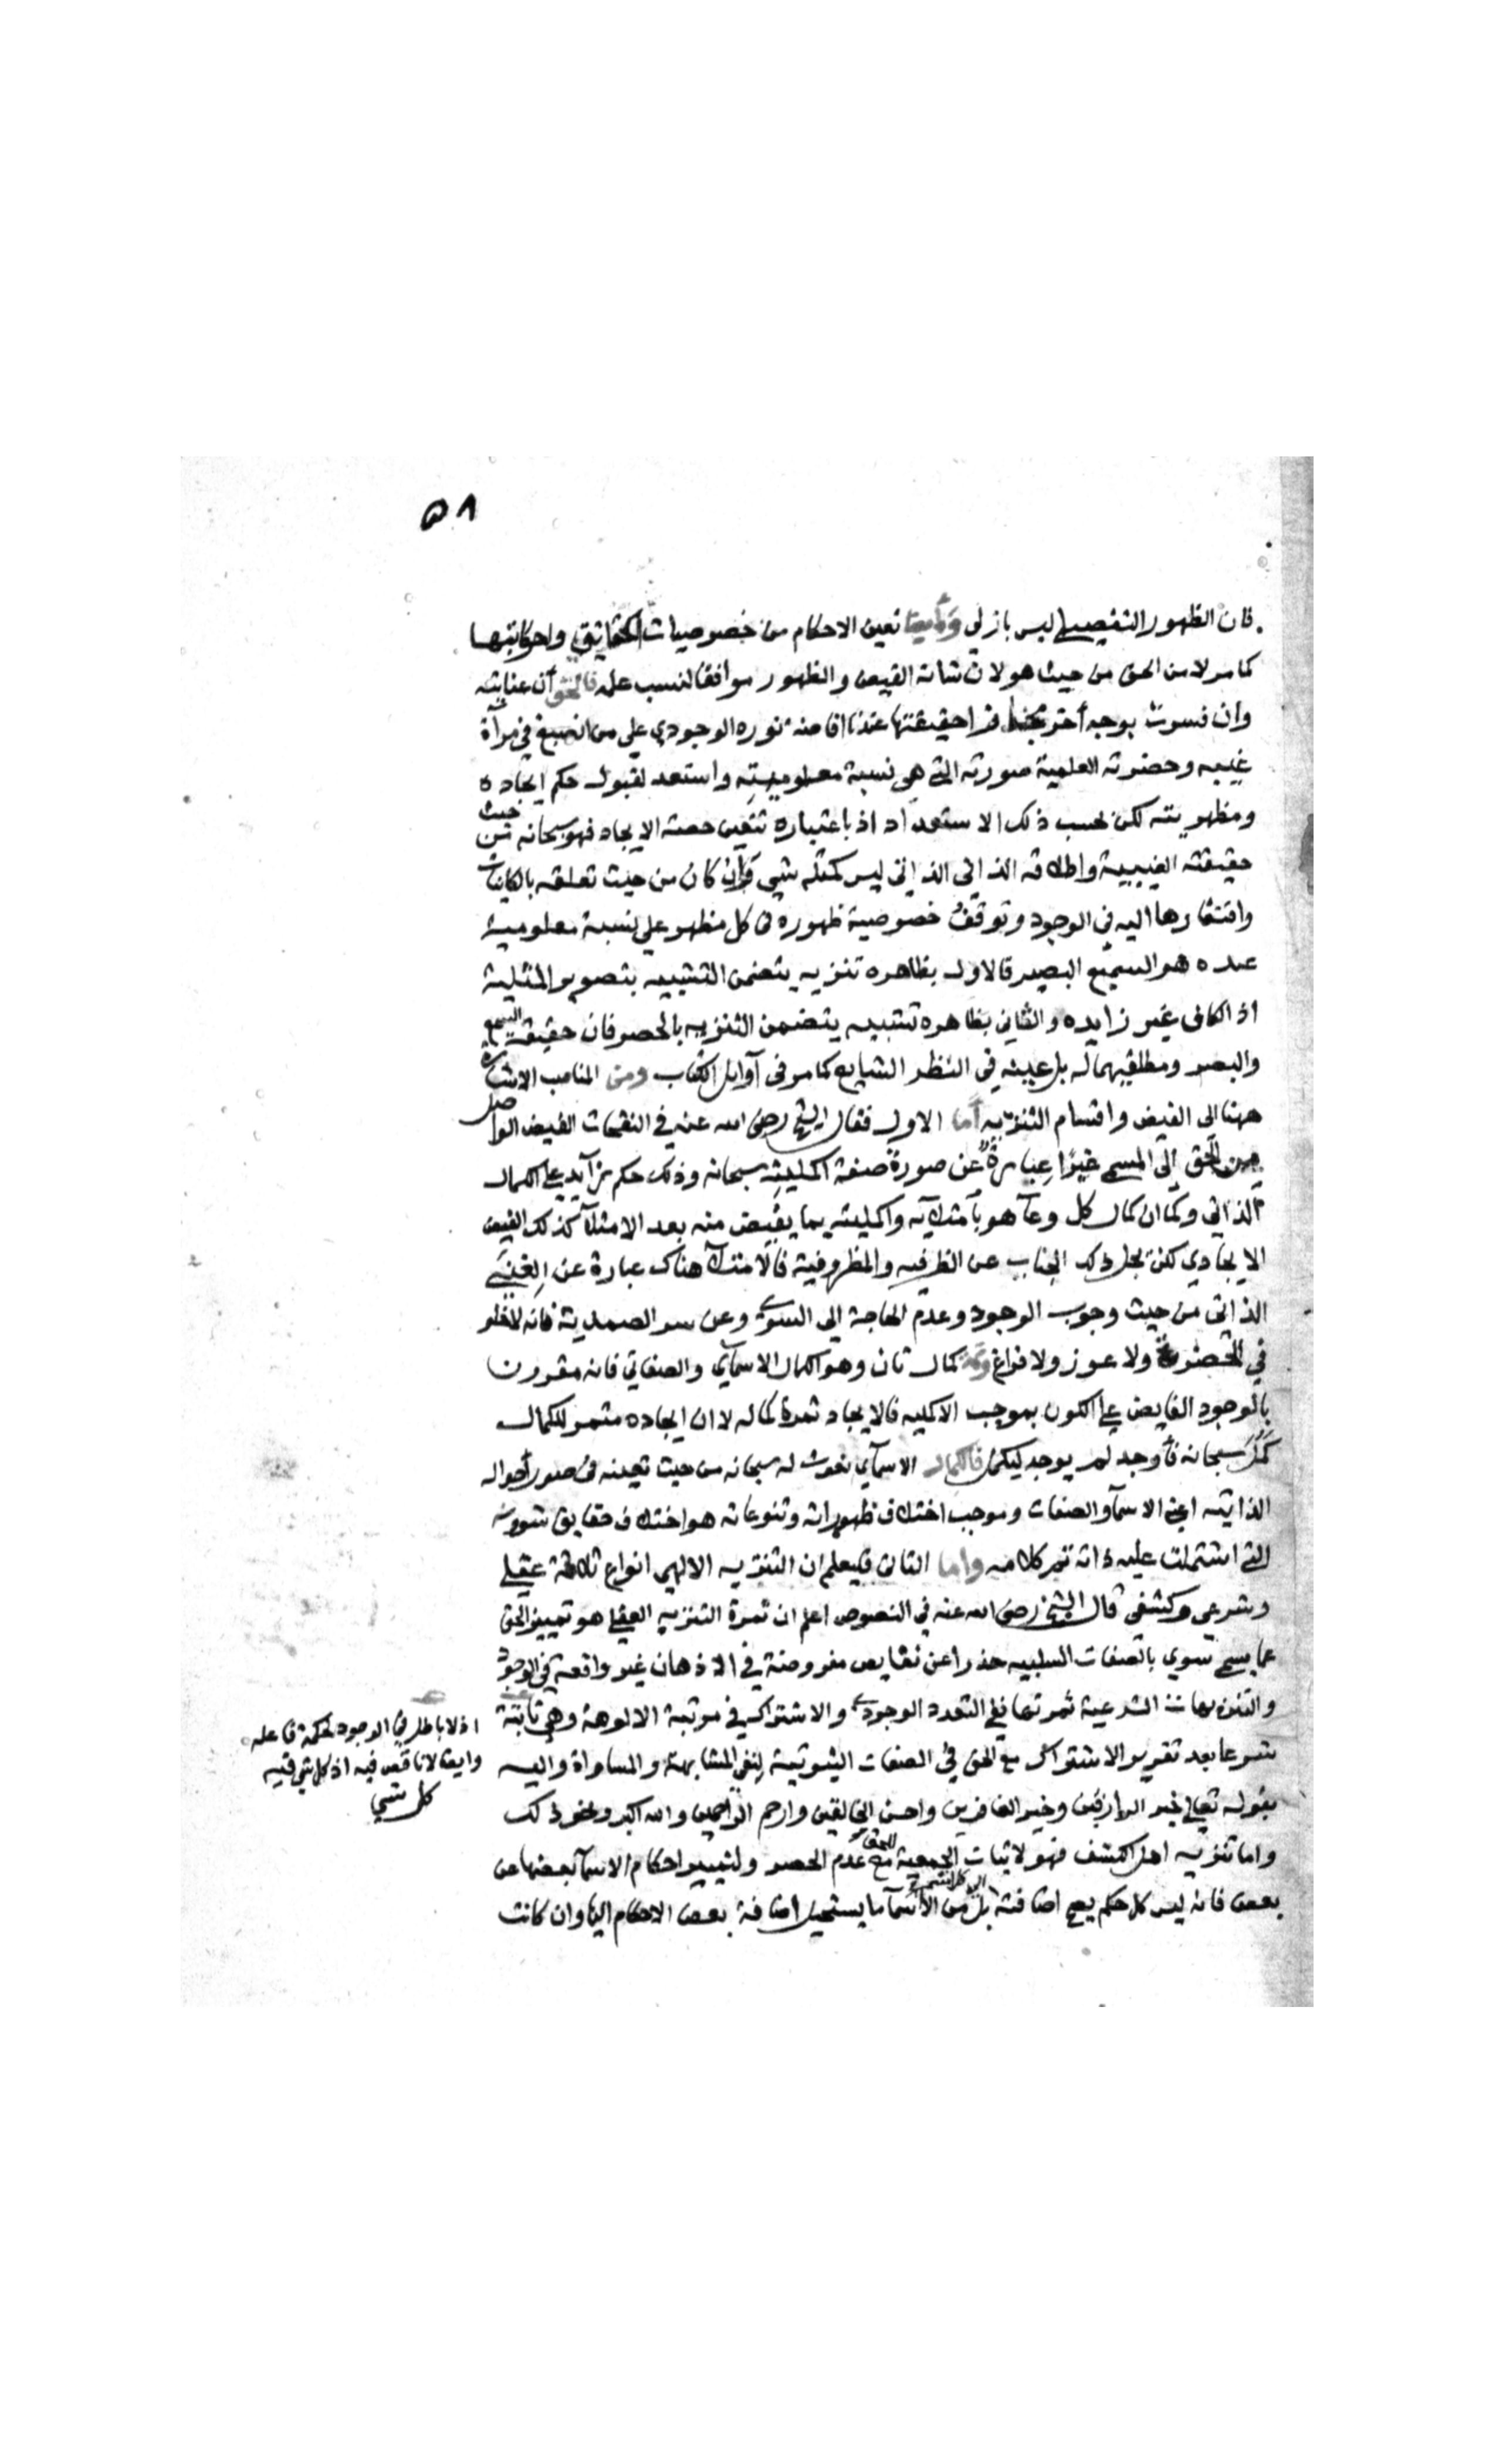 ٥٨
فان الظهور التفصيلي ليس بازلي وايضا تعين الاحكام من خصوصيات الحقايق وامكانيتها
كما مر لا من الحق من حيث هو لان شانه الفيض والظهور موافقا لنسب علمه فالحق ان عنايته
وان فسرت بوجه آخر حقيقتها عندنا افاضة نوره الوجودي على من انطبع في مرآة
غيبه وحضرته العلمية صورته التي هي نسبة معلوميته واستعد لقبول حكم ايجاده
ومظهريته لكن بحسب ذلك الاستعداد اذ باعتباره تتعين حصته الايجاد فهو سبحانه من حيث
حقيقته الغيبية واطلاقه الذاتي الذاتي ليس كمثله شي وان كان من حيث تعلقه بالكاينات
وافتقارها اليه في الوجود وتوقف خصوصية ظهوره في كل مظهر على نسبة معلومية
عنده هو السميع البصير فالاول بظاهره تنزيه يتضمن التشبيه بتصوير المثلية
اذ الكاف غير زايده والثاني بظاهره تشبيه يتضمن التنزيه بالحصر فان حقيقة السمع
والبصر ومطلقيهما له بل عينه في النظر الشايع كما مر في آوايل الكتاب ومن المناسب الاشارة
ههنا الى الفيض واقسام التنزيه اما الاول فقال الشيخ رضي الله عنه في النفحات الفيض الواصل
من الحق الى المسمى غيرا عبارة عن صورة صفة اكمليته سبحانه وذلك حكم زآيد على الكمال
الذاتي وكما ان كمال كل وعآ هو بامتلآيه واكمليته بما يفيض منه بعد الامتلآ كذلك الفيض
الايجادي لكن يجل ذلك الجناب عن الظرفيه والمظروفية فالامتلآ هناك عبارة عن الغنى
الذاتي من حيث وجوب الوجود وعدم الحاجة الى السوى وعن سر الصمدية فانه لا خلو
في الحضرة ولا عوز ولا فراغ وثمة كمال ثان وهو الكمال الاسمآي والصفاتي فانه مقرون
بالوجود الفايض على الكون بموجب الاكمليه فالايجاد ثمرة كماله لا ان ايجاده مثمر للكمال
كمل سبحانه فأوجد لم يوجد ليكمل فالكمال الاسمآي نعوت له سبحانه من حيث تعينه في صور أحواله
الذاتيته اعني الاسمآ والصفات وموجب اختلاف ظهوراته وتنوعاته هو اختلاف حقايق شوونه
التي اشتملت عليه ذاته تم كلامه واما الثاني فليعلم ان التنزيه الالهي انواع ثلاثة عقلي
وشرعي وكشفي قال الشيخ رضي الله عنه في النصوص اعلم ان ثمرة التنزيه العقلي هو تمييز الحق
عما يسمى سوي بالصفات السلبيه حذرا عن نقايص مفروضة في الاذهان غير واقعة في الوجود
والتنزيهات الشرعية ثمرتها نفي التعدد الوجودي والاشتراك في مرتبة الالوهة وهي ثابتة
شرعا بعد تقرير الاشتراك مع الحق في الصفات الثبوتية لنفي المشابهة والمساواة واليه
بقوله تعالى خير الرازقين وخير الغافرين واحسن الخالقين وارحم الراحمين والله اكبر ونحو ذلك
واما تنزيه اهل الكشف فهو لاثبات الجمعية للحق مع عدم الحصر ولتمييز احكام الاسمآ بعضها عن
بعض فانه ليس كل حكم يصح اضافته بل من الاسمآ ما يستحيل اضافة بعض الاحكام اليها وان كانت
اذ لا باطل في الوجود لحكمة فاعله
وايضا لا ناقص فيه اذ كل شي فيه
كل شي